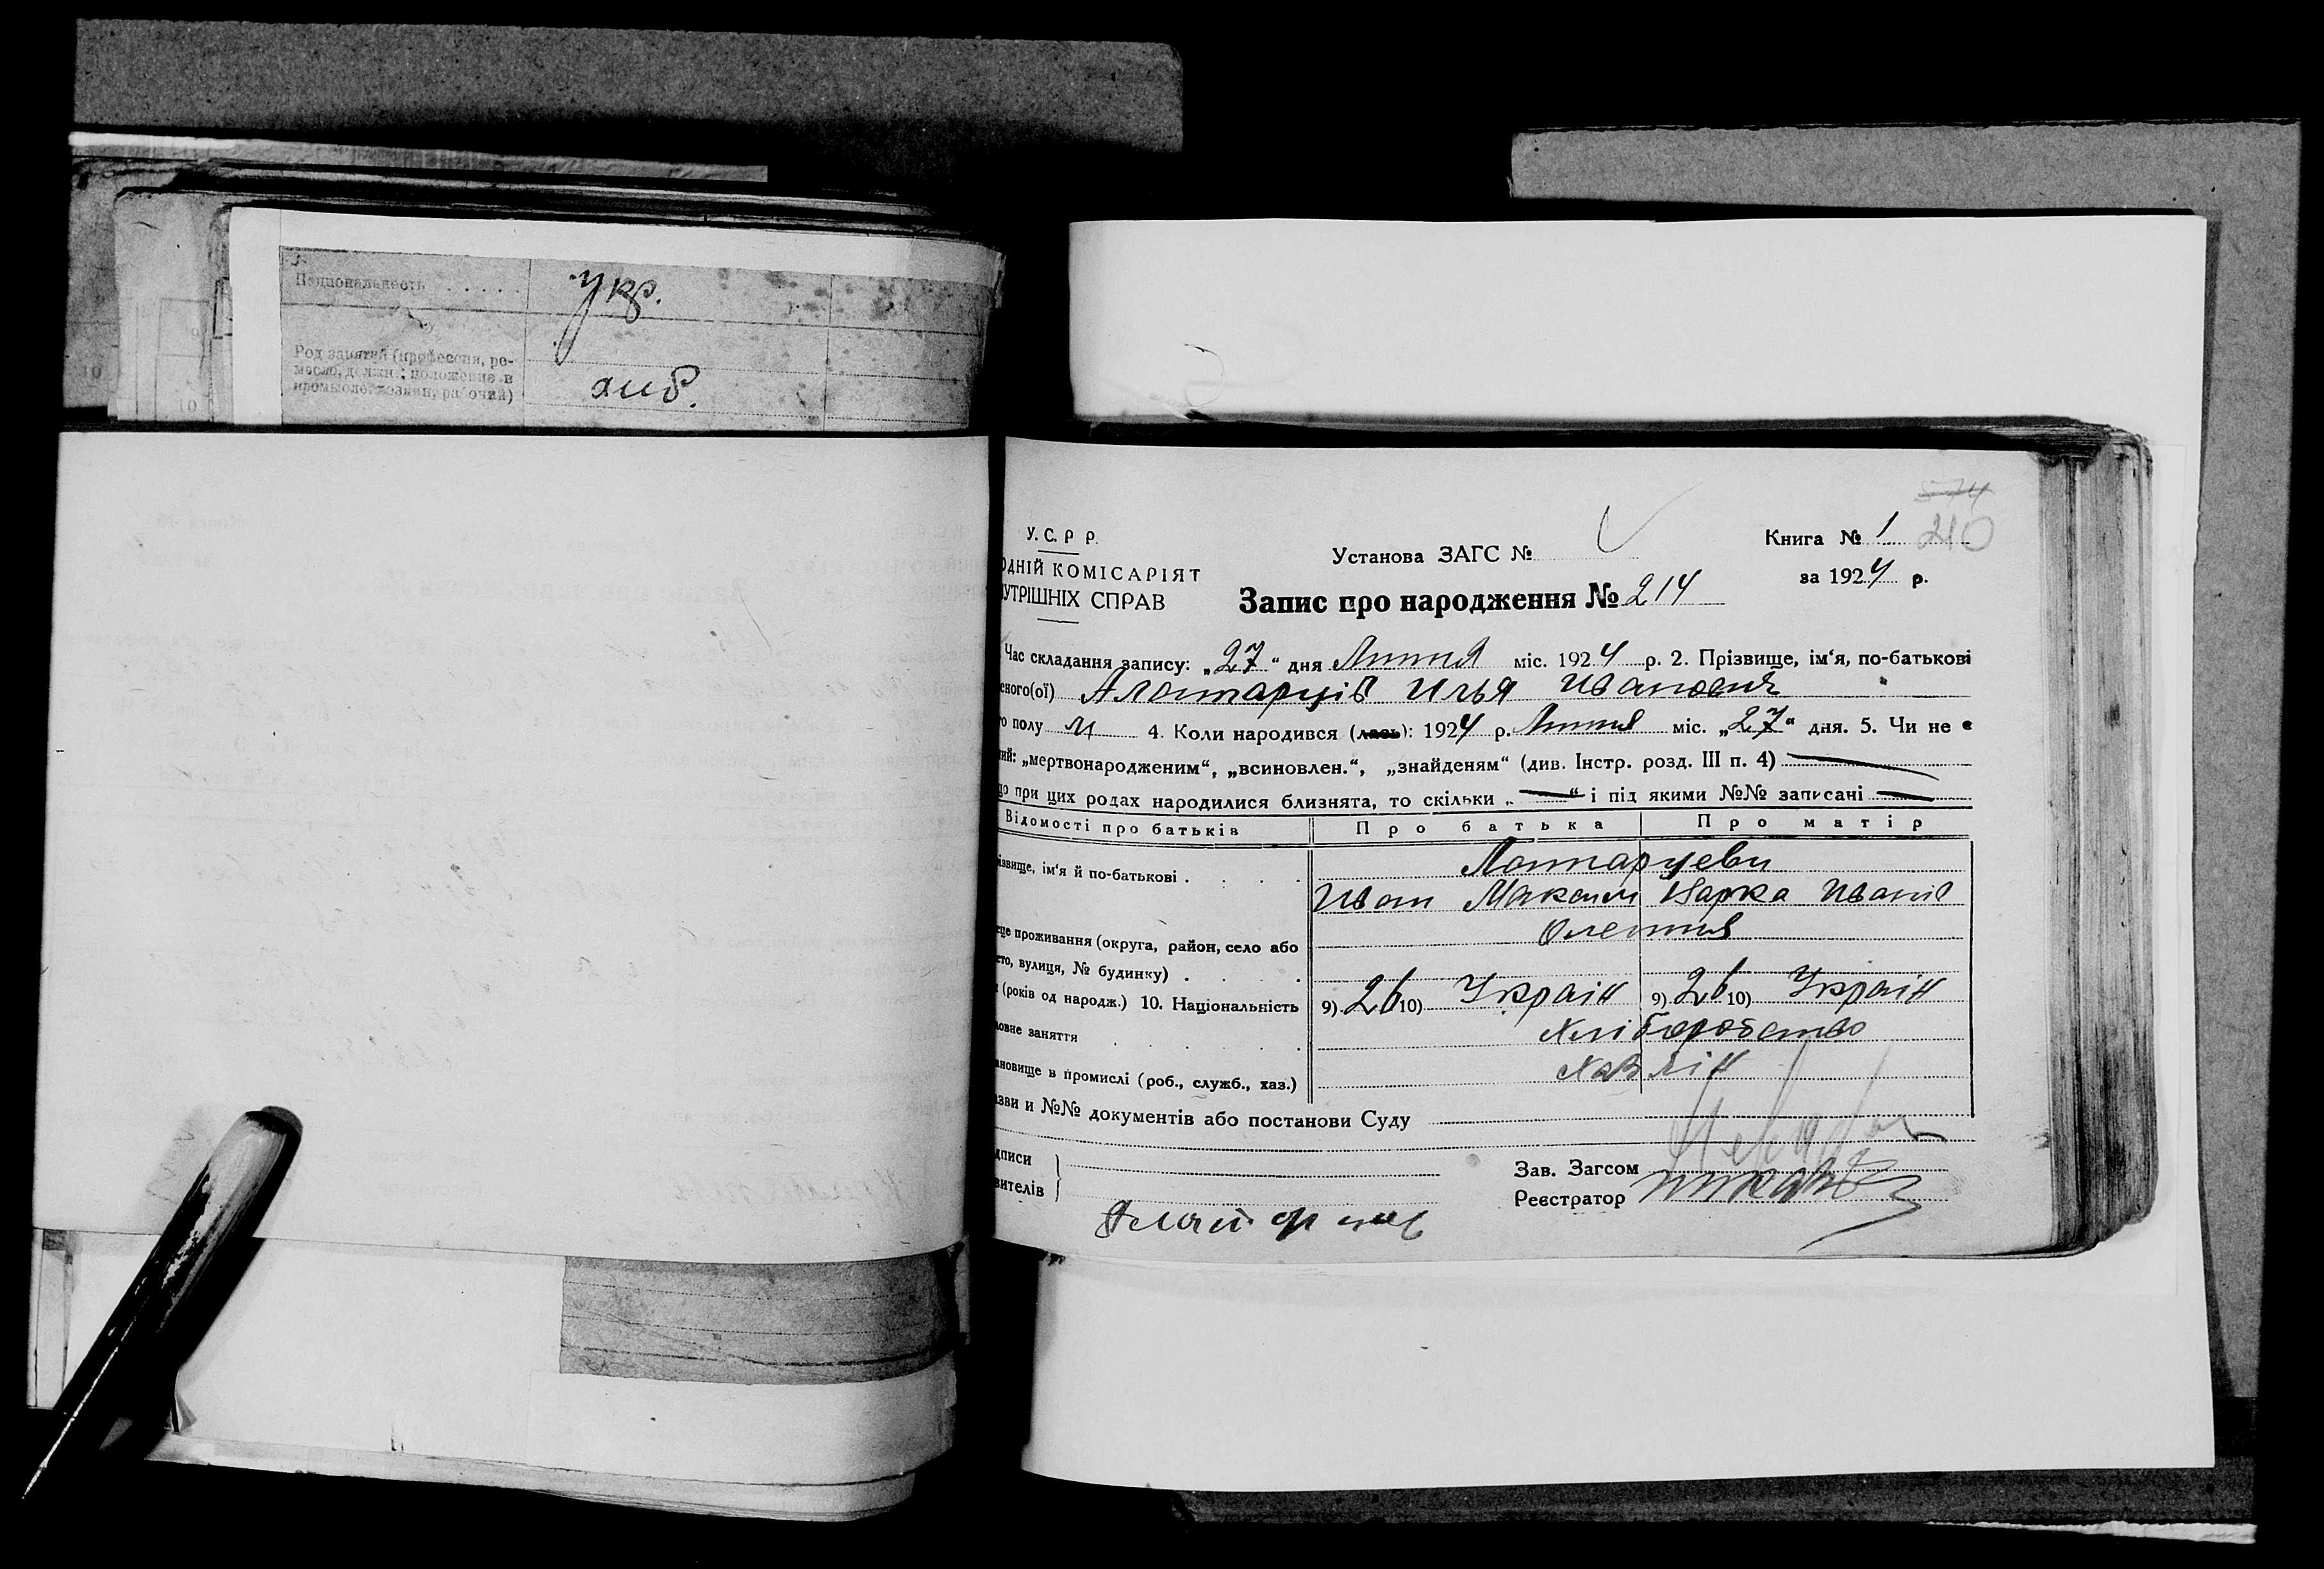 Национальность . . . . .
укр.
Род занятий (профессия, ре-
месло, должн.; положение в
промысле: хозяин, рабочий)
хлiб.
10
10
574
210
У.С.Р Р.
ОДНІЙ КОМІСАРІЯТ
УТРІШНІХ СПРАВ
Установа ЗАГС №
Книга № 1
за 1924 р.
Запис про народження № 214
Час складання запису: „27“ дня Липня міс. 1924 р. 2. Прізвище, ім‘я, по-батькові
еного(ої) Илья Иванович
го полу М 4. Коли народився (лась): 1924 р. Липня міс. „27“ дня. 5. Чи не є
ний: „мертвонародженим“, „всиновлен.“, „знайденям“ (див. Інстр. розд. III п. 4)
що при цих родах народилися близнята, то скільки „ “ і під якими №№ записані
Відомості про батьків Про батька Про матір
ізвище, ім‘я й по-батькові . . . .
Иван Максим Варка Иванів
еце проживання (округа, район, село або
сто, вулиця, № будинку) . . .
(років од народж.) 10. Національність 9) 26 10) Украін 9) 26 10) Украін
ловне заняття . . . . . Хліборобство
ановище в промислі (роб., служб., хаз.)
азви и №№ документів або постанови Суду
дписи
вителів
Зав. Загсом
Реєстратор